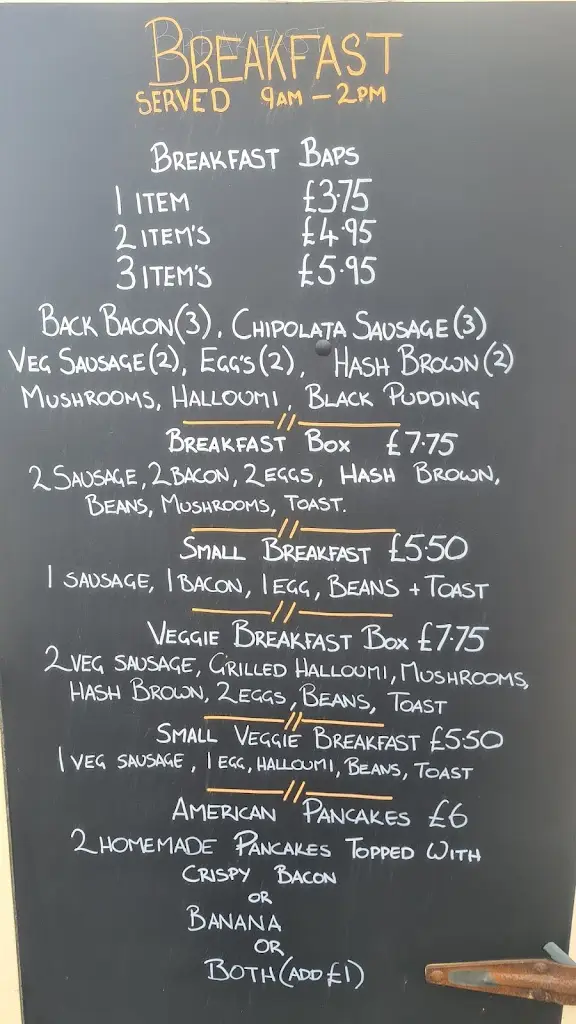 BREAKFAST
SERVED 9AM – 2PM
BREAKFAST BAPS
1 ITEM £3.75
2 ITEM'S £4.95
3 ITEM'S £5.95
BACK BACON (3), CHIPOLATA SAUSAGE (3)
VEG SAUSAGE (2), EGG'S (2), HASH BROWN (2)
MUSHROOMS, HALLOUMI, BLACK PUDDING
BREAKFAST BOX £7.75
2 SAUSAGE, 2 BACON, 2 EGGS, HASH BROWN,
BEANS, MUSHROOMS, TOAST.
SMALL BREAKFAST £5.50
1 SAUSAGE, 1 BACON, 1 EGG, BEANS + TOAST
VEGGIE BREAKFAST BOX £7.75
2 VEG SAUSAGE, GRILLED HALLOUMI, MUSHROOMS,
HASH BROWN, 2 EGGS, BEANS, TOAST
SMALL VEGGIE BREAKFAST £5.50
1 VEG SAUSAGE, 1 EGG, HALLOUMI, BEANS, TOAST
AMERICAN PANCAKES £6
2 HOMEMADE PANCAKES TOPPED WITH
CRISPY BACON
OR
BANANA
OR
BOTH (ADD £1)